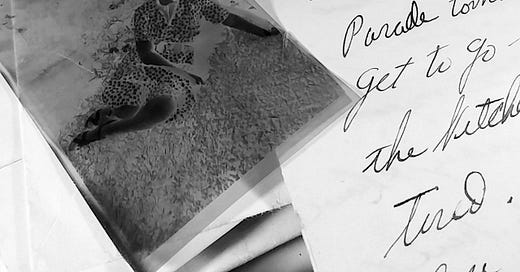 Parade
get to go -
the Kitche
Tired.